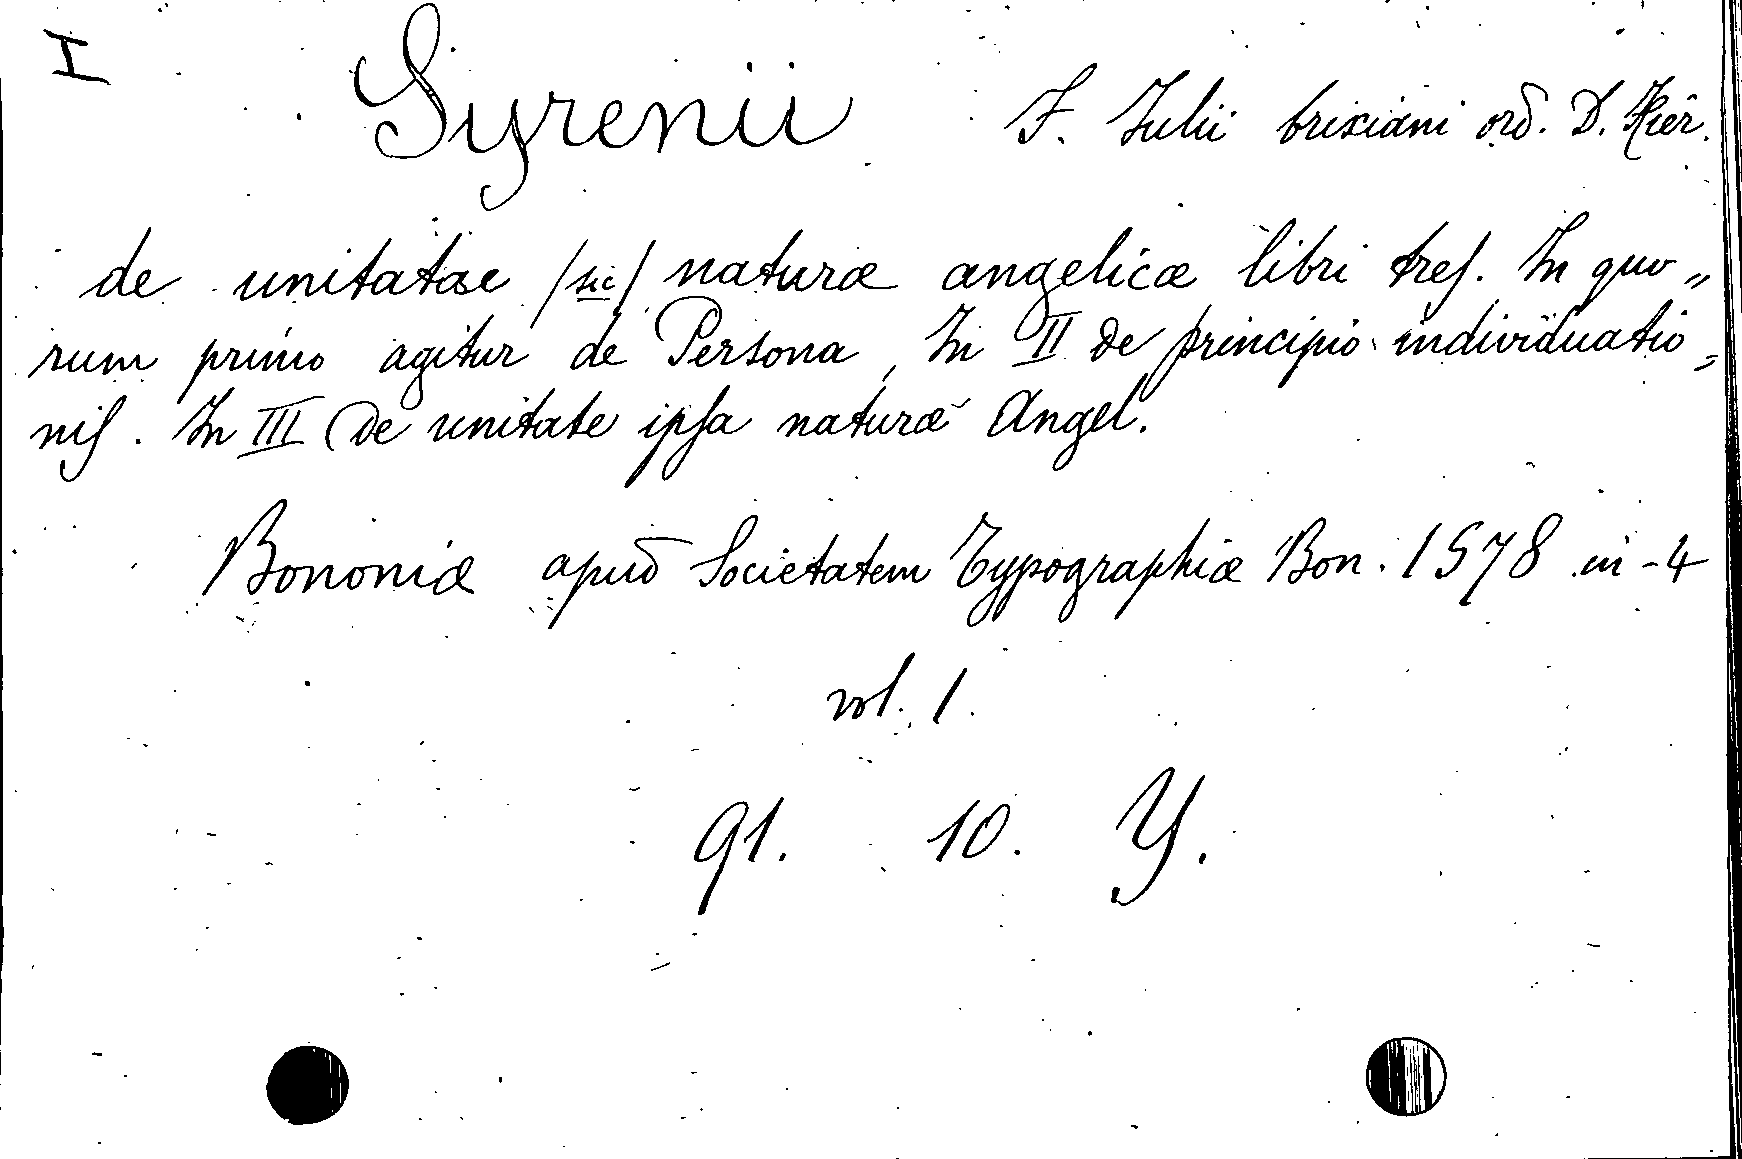 I
Syrenii F. Iulii brixiani ord. D. Hier.
de unitatae (sic) naturæ angelicæ libri tres. In quo„
rum primo agitur de Persona, In II de principio individuatio„
nis. In III de unitate ipsa naturæ Angel.
Bononiæ apud Societatem Typographiæ Bon. 1578 in-4
vol. 1.
91. 10. Y.